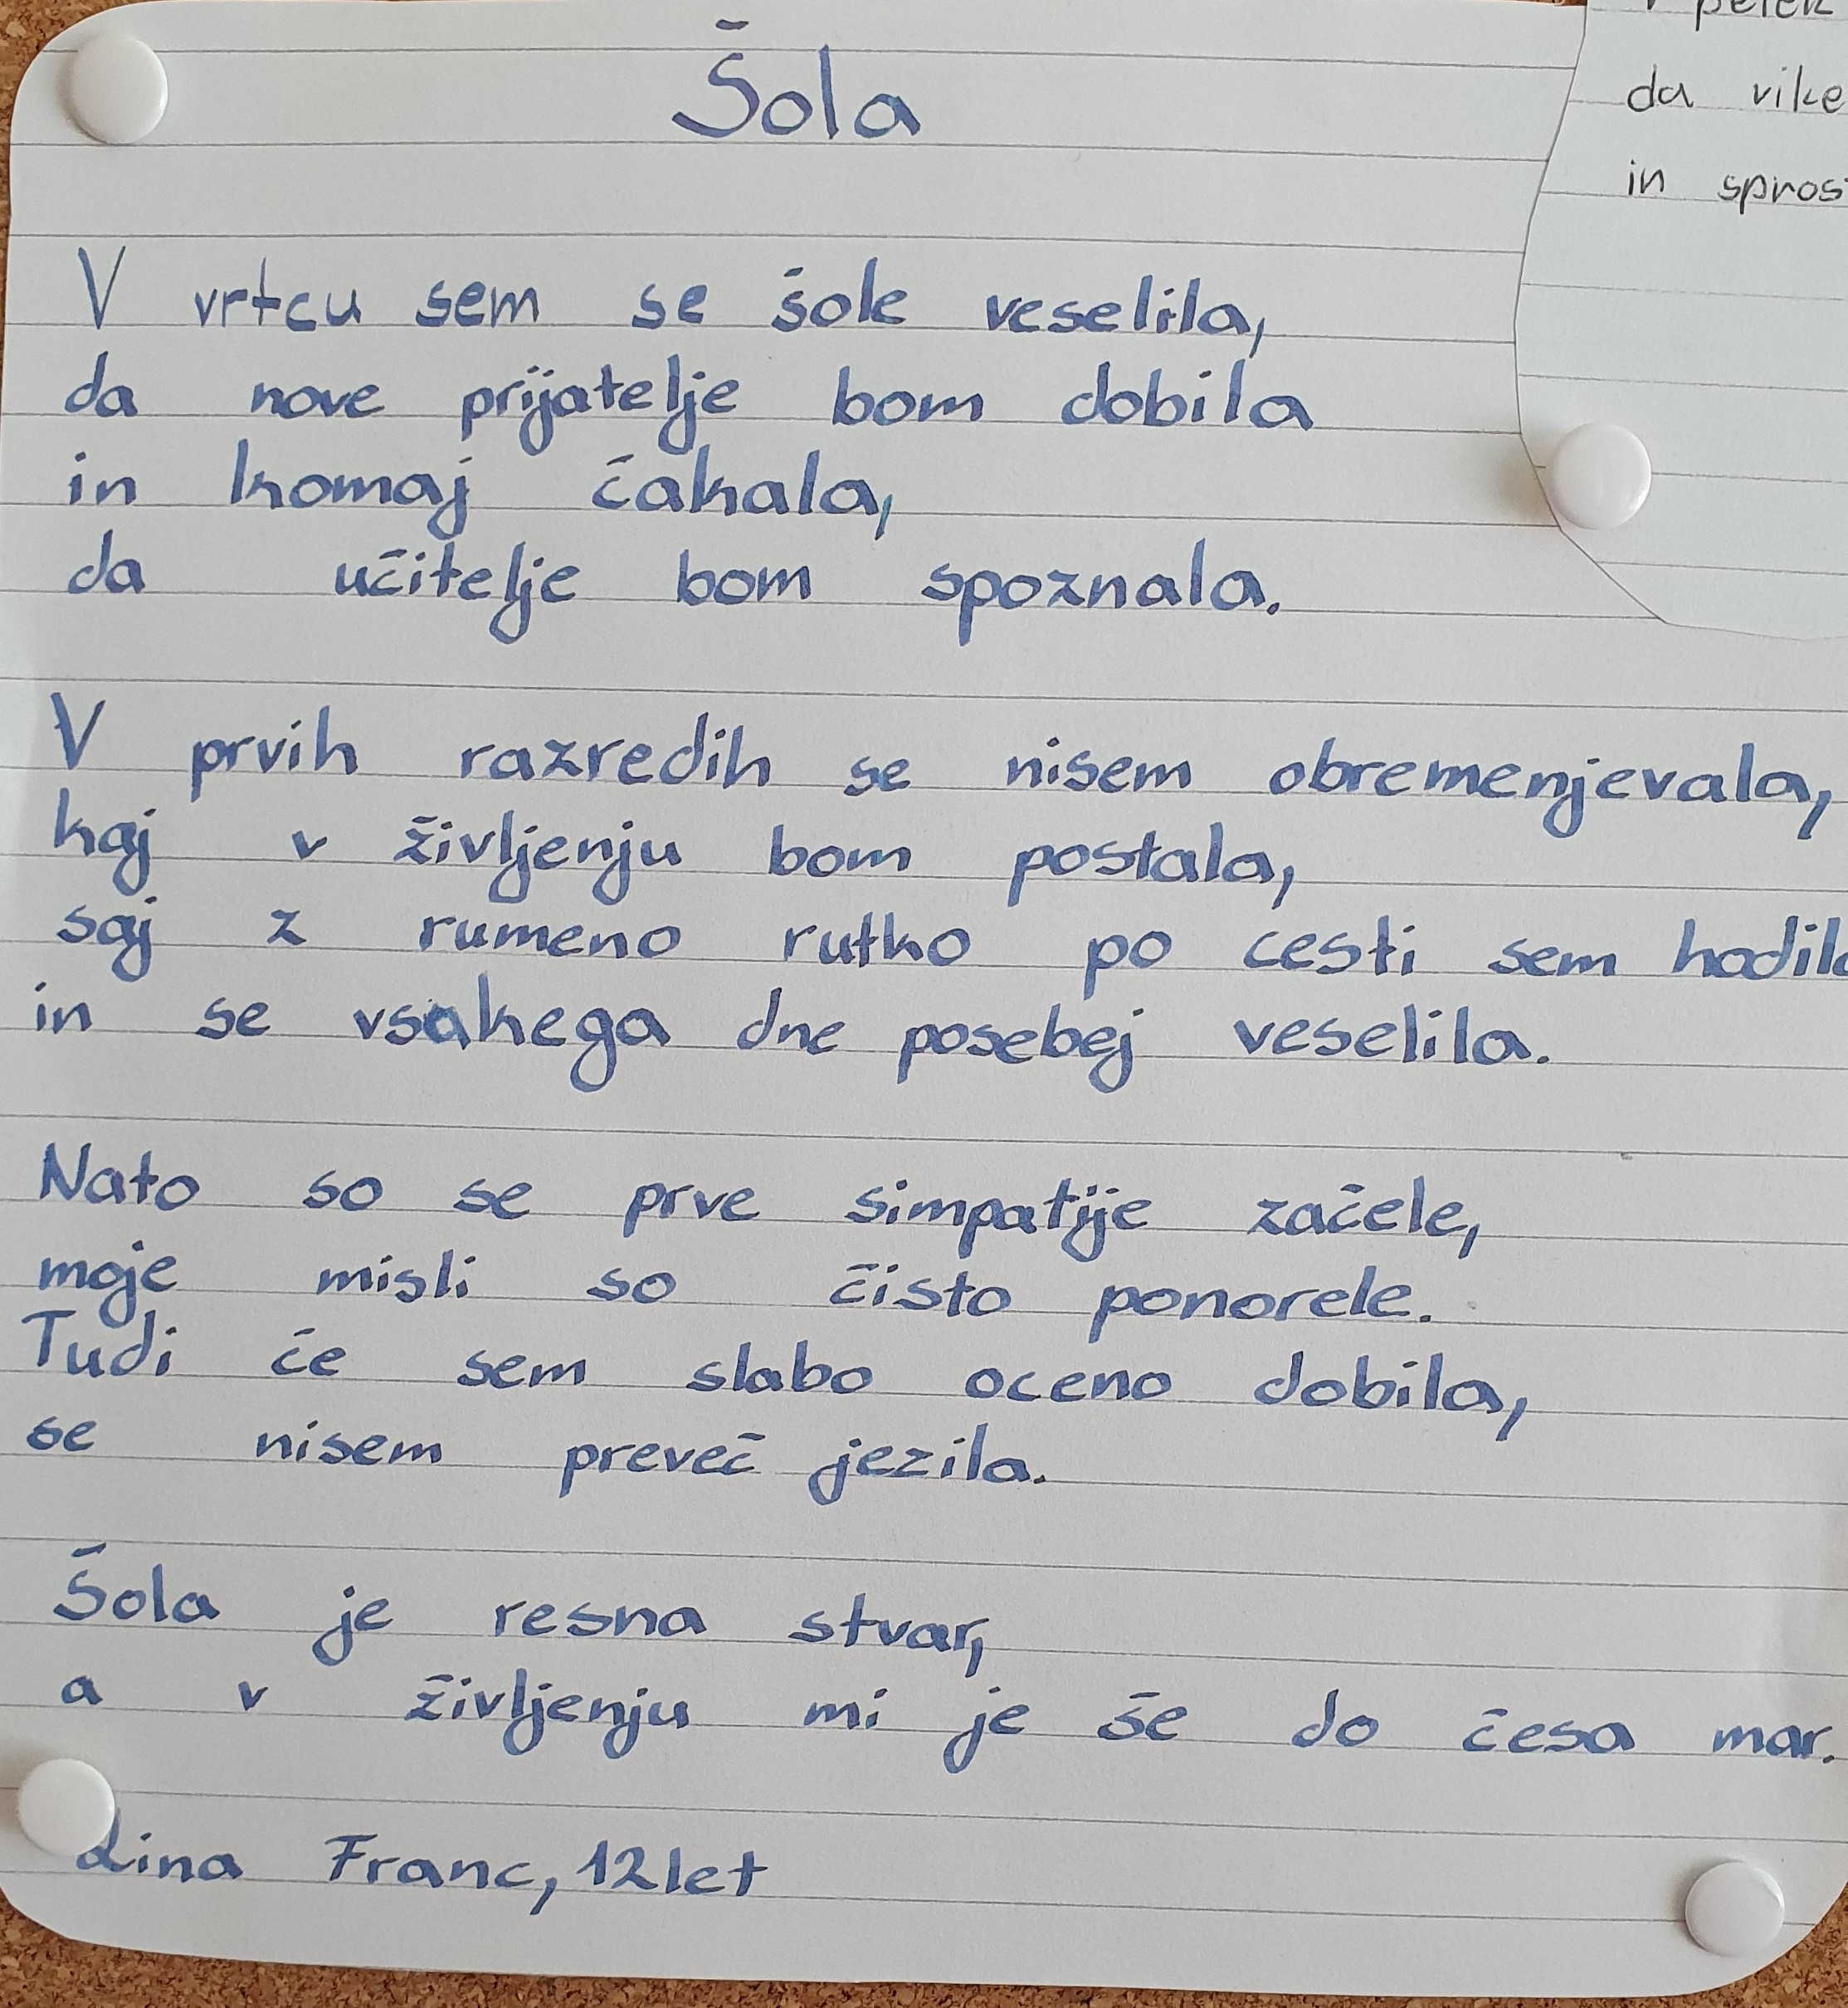 Šola
V vrtcu sem se šole veselila,
da nove prijatelje bom dobila
in komaj čakala,
da učitelje bom spoznala.
V prvih razredih se nisem obremenjevala,
kaj v življenju bom postala,
saj z rumeno rutko po cesti sem hodila
in se vsakega dne posebej veselila.
Nato so se prve simpatije začele,
moje misli so čisto ponorele.
Tudi če sem slabo oceno dobila,
se nisem preveč jezila.
Šola je resna stvar,
a v življenju mi je še do česa mar.
Lina Franc, 12 let
da
in